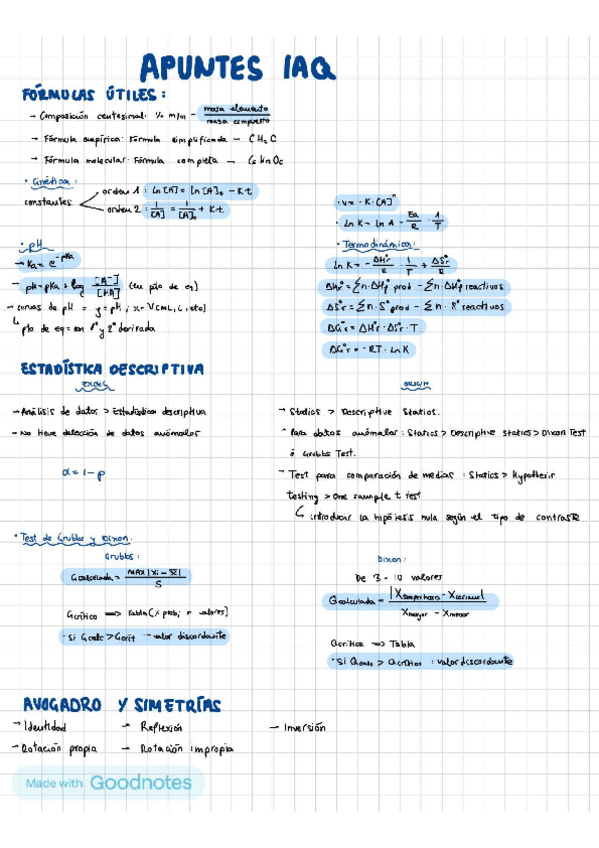 APUNTES IAQ
FÓRMULAS ÚTILES:
→ Composición centesimal: % m/m = masa elemento / masa compuesto
→ Fórmula empírica: Fórmula simplificada → CH2C
→ Fórmula molecular: Fórmula completa → C6HnOc
· Cinética:
constantes
orden 1: Ln[A] = Ln[A]₀ - K·t
orden 2: 1/[A] = 1/[A]₀ + K·t
· v = -K·[A]ⁿ
· Ln K = Ln A - Ea/R · 1/T
· pH
→ Ka = e^-pKa
→ pH = pKa + log [A⁻]/[HA] (en pto de eq)
→ curvas de pH = y = pH; x = V (mL, L, etc)
↳ pto de eq = en 1ª y 2ª derivada
· Termodinámica:
Ln K = -ΔHºr/R · 1/T + ΔSºr/R
ΔHºr = Σn·ΔHºf prod - Σn·ΔHºf reactivos
ΔSºr = Σn·Sº prod - Σn·Sº reactivos
ΔGºr = ΔHºr - ΔSºr·T
ΔGºr = -RT·Ln K
ESTADÍSTICA DESCRIPTIVA
EXCEL
→ Análisis de datos > Estadística descriptiva
→ No tiene detección de datos anómalos
α = 1-p
ORIGIN
→ Statics > Descriptive Statics.
→ Para datos anómalos: Statics > Descriptive statics > Dixon Test
ó Grubbs Test.
→ Test para comparación de medias: Statics > Hypothesis
testing > One sample t test
↳ introducir la hipótesis nula según el tipo de contraste
· Test de Grubbs y Dixon.
Grubbs:
G calculada = MAX |xi - x̅| / S
G crítico ⟹ Tabla (x prob; n valores)
· Si G calc > G crit → valor discordante
Dixon:
De 3 - 10 valores
Q calculada = |X sospechoso - X cercano| / X mayor - X menor
Q crítica ⟹ Tabla
· Si Q calc > Q crítico : valor discordante
AVOGADRO Y SIMETRÍAS
→ Identidad → Reflexión → Inversión
→ Rotación propia → Rotación impropia
Made with Goodnotes